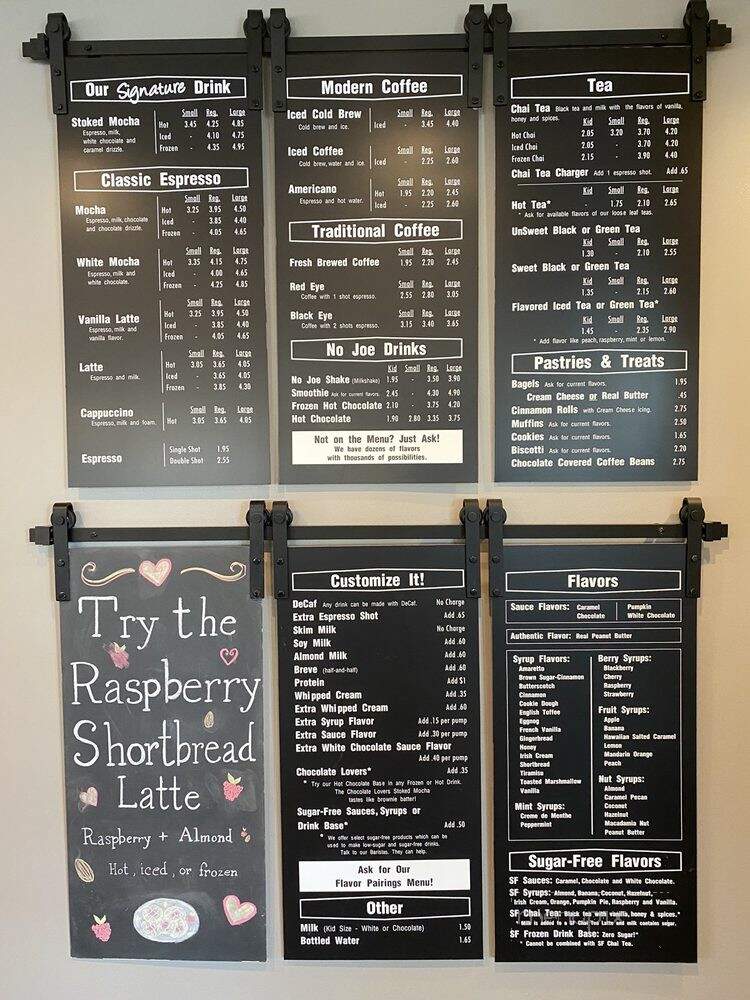 Our Signature Drink
Small Reg. Large
Stoked Mocha Hot 3.45 4.25 4.85
Espresso, milk,
white chocolate and Iced - 4.10 4.75
caramel drizzle. Frozen - 4.35 4.95
Classic Espresso
Small Reg. Large
Mocha Hot 3.25 3.95 4.50
Espresso, milk, chocolate Iced - 3.85 4.40
and chocolate drizzle. Frozen - 4.05 4.65
Small Reg. Large
White Mocha Hot 3.35 4.15 4.75
Espresso, milk and Iced - 4.00 4.65
white chocolate. Frozen - 4.25 4.85
Small Reg. Large
Vanilla Latte Hot 3.25 3.95 4.50
Espresso, milk and Iced - 3.85 4.40
vanilla flavor. Frozen - 4.05 4.65
Small Reg. Large
Latte Hot 3.05 3.65 4.05
Espresso and milk. Iced - 3.65 4.05
Frozen - 3.85 4.30
Small Reg. Large
Cappuccino
Espresso, milk, and foam. Hot 3.05 3.65 4.05
Espresso Single Shot 1.95
Double Shot 2.55
Modern Coffee
Small Reg. Large
Iced Cold Brew
Cold brew and ice. Iced - 3.45 4.40
Small Reg. Large
Iced Coffee
Cold brew, water and ice Iced - 2.25 2.60
Small Reg. Large
Americano Hot 1.95 2.20 2.45
Espresso and hot water. Iced - 2.25 2.60
Traditional Coffee
Small Reg. Large
Fresh Brewed Coffee 1.95 2.20 2.45
Small Reg. Large
Red Eye
Coffee with 1 shot espresso. 2.55 2.80 3.05
Small Reg. Large
Black Eye
Coffee with 2 shots espresso. 3.15 3.40 3.65
No Joe Drinks
Kid Small Reg. Large
No Joe Shake (Milkshake) 1.95 3.50 3.90
Smoothie Ask for current flavors. 2.45 - 4.30 4.90
Frozen Hot Chocolate 2.10 - 3.75 4.20
Hot Chocolate 1.90 2.80 3.35 3.75
Not on the Menu? Just Ask!
We have dozens of flavors
with thousands of possibilities.
Tea
Chai Tea Black tea and milk with the flavors of vanilla,
honey and spices.
Kid Small Reg. Large
Hot Chai 2.05 3.20 3.70 4.20
Iced Chai 2.05 - 3.70 4.20
Frozen Chai 2.15 - 3.90 4.40
Chai Tea Charger Add 1 espresso shot. Add .65
Kid Small Reg. Large
Hot Tea* - 1.75 2.10 2.65
* Ask for available flavors of our loose leaf teas.
UnSweet Black or Green Tea
Kid Small Reg. Large
1.30 - 2.10 2.55
Sweet Black or Green Tea
Kid Small Reg. Large
1.35 - 2.15 2.60
Flavored Iced Tea or Green Tea*
Kid Small Reg. Large
1.45 - 2.35 2.90
* Add flavor like peach, raspberry, mint or lemon.
Pastries & Treats
Bagels Ask for current flavors. 1.95
Cream Cheese or Real Butter .45
Cinnamon Rolls with Cream Cheese icing. 2.75
Muffins Ask for current flavors. 2.50
Cookies Ask for current flavors. 1.65
Biscotti Ask for current flavors. 2.20
Chocolate Covered Coffee Beans 2.75
Try the
Raspberry
Shortbread
Latte
Raspberry + Almond
Hot, iced, or frozen
Customize It!
DeCaf Any drink can be made with DeCaf. No Charge
Extra Espresso Shot Add .65
Skim Milk No Charge
Soy Milk Add .60
Almond Milk Add .60
Breve (half-and-half) Add .60
Protein Add $1
Whipped Cream Add .35
Extra Whipped Cream Add .60
Extra Syrup Flavor Add .15 per pump
Extra Sauce Flavor Add .30 per pump
Extra White Chocolate Sauce Flavor
Add .40 per pump
Chocolate Lovers* Add .35
* Try our Hot Chocolate Base in any Frozen or Hot Drink.
The Chocolate Lovers Stoked Mocha
tastes like brownie batter!
Sugar-Free Sauces, Syrups or
Drink Base* Add .50
* We offer select sugar-free products which can be
used to make low-sugar and sugar-free drinks.
Talk to our Baristas. They can help.
Ask for Our
Flavor Pairings Menu!
Other
Milk (Kid Size - White or Chocolate) 1.50
Bottled Water 1.65
Flavors
Sauce Flavors: Caramel Pumpkin
Chocolate White Chocolate
Authentic Flavor: Real Peanut Butter
Syrup Flavors:
Amaretto
Brown Sugar-Cinnamon
Butterscotch
Cinnamon
Cookie Dough
English Toffee
Eggnog
French Vanilla
Gingerbread
Honey
Irish Cream
Shortbread
Tiramisu
Toasted Marshmallow
Vanilla
Mint Syrups:
Creme de Menthe
Peppermint
Berry Syrups:
Blackberry
Cherry
Raspberry
Strawberry
Fruit Syrups:
Apple
Banana
Hawaiian Salted Caramel
Lemon
Mandarin Orange
Peach
Nut Syrups:
Almond
Caramel Pecan
Coconut
Hazelnut
Macadamia Nut
Peanut Butter
Sugar-Free Flavors
SF Sauces: Caramel, Chocolate and White Chocolate.
SF Syrups: Almond, Banana, Coconut, Hazelnut,
Irish Cream, Orange, Pumpkin Pie, Raspberry and Vanilla.
SF Chai Tea: Black tea with vanilla, honey & spices.*
to a Chai Tea Latte and milk contains sugar.
SF Frozen Drink Base: Zero Sugar!*
* Cannot be combined with SF Chai Tea.